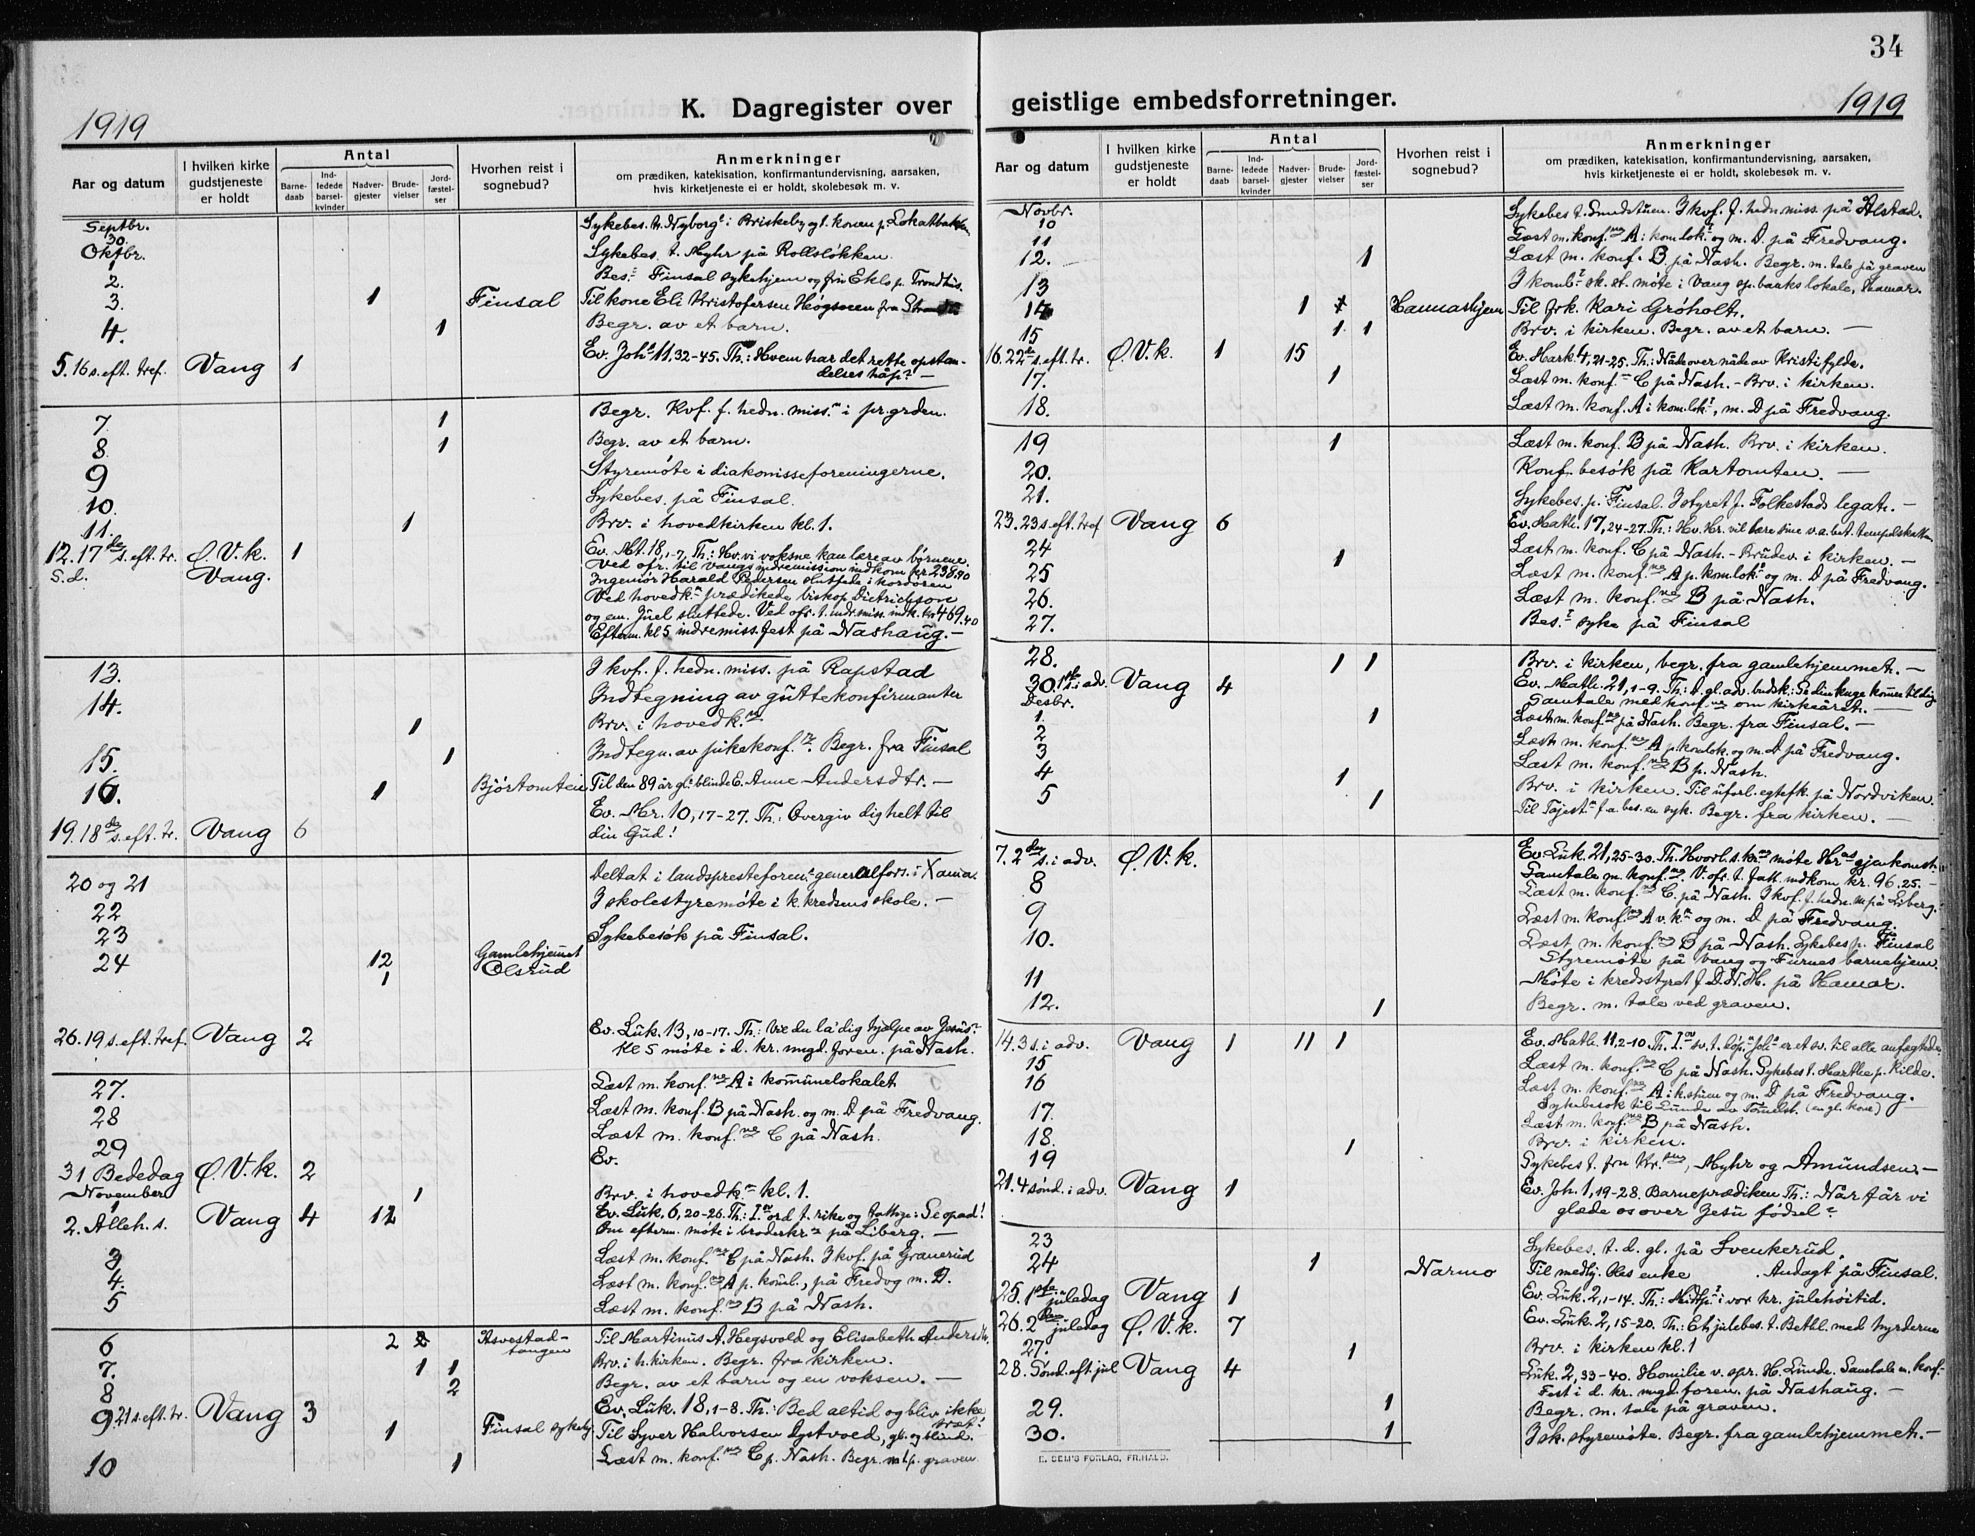 34
1919
K. Dagregister over
geistlige embedsforretninger.
1919
Aar og datum
I hvilken kirke gudstjeneste er holdt
Antal
Barne-daab
Ind-ledede barsel-kvinder
Nadver-gjester
Brude-vielser
Jord-fæstel-ser
Hvorhen reist i sognebud?
Anmerkninger
om prædiken, katekisation, konfirmantundervisning, aarsaken,
hvis kirketjeneste ei er holdt, skolebesøk m. v.
Septbr.
30. Sykebes. t. Nyborg i Briskeby og t. konen p.
Oktbr.
1 Sykebes. t. Myhr på Rollsløkken.
2. Bes. Finsal sykehjem og frk Eklo p. Trondhus.
3. 1 Finsal Til kone Eli Kristofersen Høgsveen fra
4. 1 Begr. av et barn.
5. 16 s. eft. tref. Vang 1 Ev. Joh. 11, 32-45. Th: Hvem har det rette opstan-
delses håp? —
7 1 Begr. Kvf. f. hedn. miss. i pr.grden.
8 1 Begr. av et barn.
9 Styremøte i diakonisseforeningerne.
10. Sykebes. på Finsal.
11. 1 Brv. i hovedkirken kl. 1.
12. 17de s. eft. tr. Ø. V. k. 1 Ev. Mt. 18, 1-7, Th: Hv. vi voksne kan lære av børnene.
s. d. Vang. Ved ofr. til Vangs indremission indkom kr 238.90
Ingeniør Harald Pedersen sluttede i kordøren
Ved hovedk. prædikede biskop Dietrichson
og em. Juel sluttede. Ved ofr. t. indremiss. indk. kr 469.40
Efterm. kl 5 indremiss. fest på Nashaug. —
13. I kvf. f. hedn. miss. på Rapstad
14. Indtegning av guttekonfirmanter
1 Brv. i hovedk.
15. 1 Indtegn. av pikekonf. Begr. fra Finsal
16. 1 Bjørtomteien Til den 89 år gl. blinde E. Anne Andersdtr. —
19. 18de s. eft. tr. Vang 6 Ev. Mr. 10, 17-27. Th: Overgiv dig helt til
din Gud!
20 og 21 Deltat i landspresteforen. generalfors. i Xania.
22 I skolestyremøte i k. kredsens skole. —
23 Sykebesøk på Finsal.
24 12 Gamlehjemmet
1 Olsrud
26. 19 s. eft. tref. Vang 2 Ev. Luk. 13, 10-17. Th: Vil du la dig hjælpe av Jesus?
kl 5 møte i d. kr. ungd. foren. på Nash.
27. Læst m. konf.ne A i kommunelokalet
28 Læst m. konf. B på Nash. og m. D på Fredvang.
29 Læst m. konf.ne C på Nash.
31 Bededag Ø. V. k. 2 Ev.
November
1 1 Brv. i hovedk. kl. 1.
2. Alleh. s. Vang 4 12 Ev. Luk. 6, 20-26. Th: I ord t. rike og fattige: Se opad!
Om efterm. møte i broderkr. på Liberg. —
3 Læst m. konf.ne C på Nash. I kvf. på Granerud
4. Læst m. konf.ne A p. koml., på Fredvg m. D.
5 Læst m. konf.ne B på Nash.
6 2 Asvestad-tangen Til Martinus A. Hegsvold og Elisabeth
7. 1 1 Brv. i h. kirken. Begr. fra kirken.
8 2 Begr. av et barn og en voksen. —
9. 21 s. eft. tr. Vang 3 Ev. Luk. 18, 1-8. Th: Bed altid og bliv ikke træt!
1 Finsal sykehj. Til Syver Halvorsen Lystvold, gl. og blind.
10 1 Læst m. konf.ne C p. Nash. Begr. m. t. p. graven
Aar og datum
I hvilken kirke gudstjeneste er holdt
Antal
Barne-daab
Ind-ledede barsel-kvinder
Nadver-gjester
Brude-vielser
Jord-fæstel-ser
Hvorhen reist i sognebud?
Anmerkninger
om prædiken, katekisation, konfirmantundervisning, aarsaken,
hvis kirketjeneste ei er holdt, skolebesøk m. v.
Novbr.
10 Sykebes t. Smedstuen. I kvf. f. hedn. miss. på Alstad.
11 Læst m. konf.ne A i kom. lok. og m. D. på Fredvang.
12. 1 Læst m. konf. B på Nash. Begr. m. tale på graven
13 I komb. sk. st. møte i Vang sp. banks lokale, Hamar.
14 1 Hannashjem Til frk. Kari Grøholt.
15 1 1 Brv. i kirken. Begr. av et barn. —
16. 22de s. eft. tr. Ø. V. k. 1 15 Ev. Mark. 4, 21-25. Th: Nåde over nåde av Kristi fylde.
17. 1 Læst m. konf. C på Nash. - Brv. i kirken.
18. Læst m. konf. A i kom. lok., m. D på Fredvang.
19 1 Læst m. konf. B på Nash. Brv. i kirken.
20. Konf. besøk på Kartomten. —
21. Sykebes. p. Finsal. I styret f. Folkestads legat. —
23. 23 s. eft. tref Vang 6 Ev. Math. 17, 24-27. Th: Hv. Kr. vil lære sine v. a. bet. tempelskatten
24 1 Læst m. konf. C på Nash. - Brudev. i kirken. —
25 Læst m. konf.ne A p. kom. lok. og m. D på Fredvang.
26. Læst m. konf.ne B på Nash.
27. Bes. syke på Finsal
28. 1 1 Brv. i kirken, begr. fra gamlehjemmet. —
30. 1ste s. i adv. Vang 4 Ev. Math. 21, 1-9. Th: D. gl. adv. budsk.: Se din konge kommer til dig
Samtale med konf.ne om kirkeåret. —
Desbr.
1. 1 Læst m. konf.ne på Nash. Begr. fra Finsal. —
2 Læst m. konf.ne A p. kom. lok. og m. D på Fredvang.
3 Læst m. konf.ne B p. Nash.
4 1 Brv. i kirken. Til uforl. egtefk. på Nordviken.
5 1 Til f. a. bes. en syk. Begr. fra kirken. —
7. 2den s. i adv. Ø. V. k. Ev. Luk. 21, 25-30. Th. Hvorl. s. kr.ne møte Hrs gjenkomst
Samtale m. konf.ne. V. ofr. t. fatt. indkom kr. 96.25. —
8 Læst m. konf.ne C. på Nash. I kvf. f. hedn. m på Liberg.
9 Læst m. konf.ne A v. k. og m. D på Fredvang.
10. Læst m. konf.ne B på Nash. Sykebes p. Finsal
Styremøte på Vang og Furnes barnehjem.
11 Møte i kredsstyret f. D. N. M. på Hamar.
12. 1 Begr. m. tale ved graven.
14. 3 s. i adv. Vang 1 11 1 Ev. Math. 11, 2-10. Th. er et sv. til alle anfægtede
15 Læst m. konf.ne C på Nash. Sykebes t. Hartke p. Kilde.
16 Læst m. konf.ne A i k. stuen og m. D på Fredvang.
Sykebesøk til Lunde av Tomelst. (en gl. kone)
17. Læst m. konf.ne B på Nash.
18. 1 Brv. i kirken.
19 Sykebes t. fru Kr.sens, Myhr og Amundsen. —
21. 4 sønd. i adv. Vang 1 Ev. Joh. 1, 19-28. Barneprædiken Th: Når får vi
glæde os over Jesu fødsel?
23 Sykebes. t. d. gl. på Svenkerud.
24 1 Narmo Til medhj. Ols enke. Andagt på Finsal.
25. 1ste juledag Vang 1 Ev. Luk. 2, 1-14. Th: i vor kr. julehøitid.
26. 2den juledag Ø. V. k. 7 Ev. Luk. 2, 15-20. Th: Et julebes. t. Bethl. med hyrderne
27. 1 Brv. i kirken kl. 1
28. Sønd. eft. jul Vang 4 Luk. 2, 33-40. Homilie v. spr. H. Lunde. Samtale m. konf.
Fest i d. kr. ungd. foren. på Nashaug. —
29. 1 Begr. m. tale på graven.
30. 1 I sk. styremøte. Begr. fra gamlehjemmet. —
E. SEM'S FORLAG, FR.HALD.